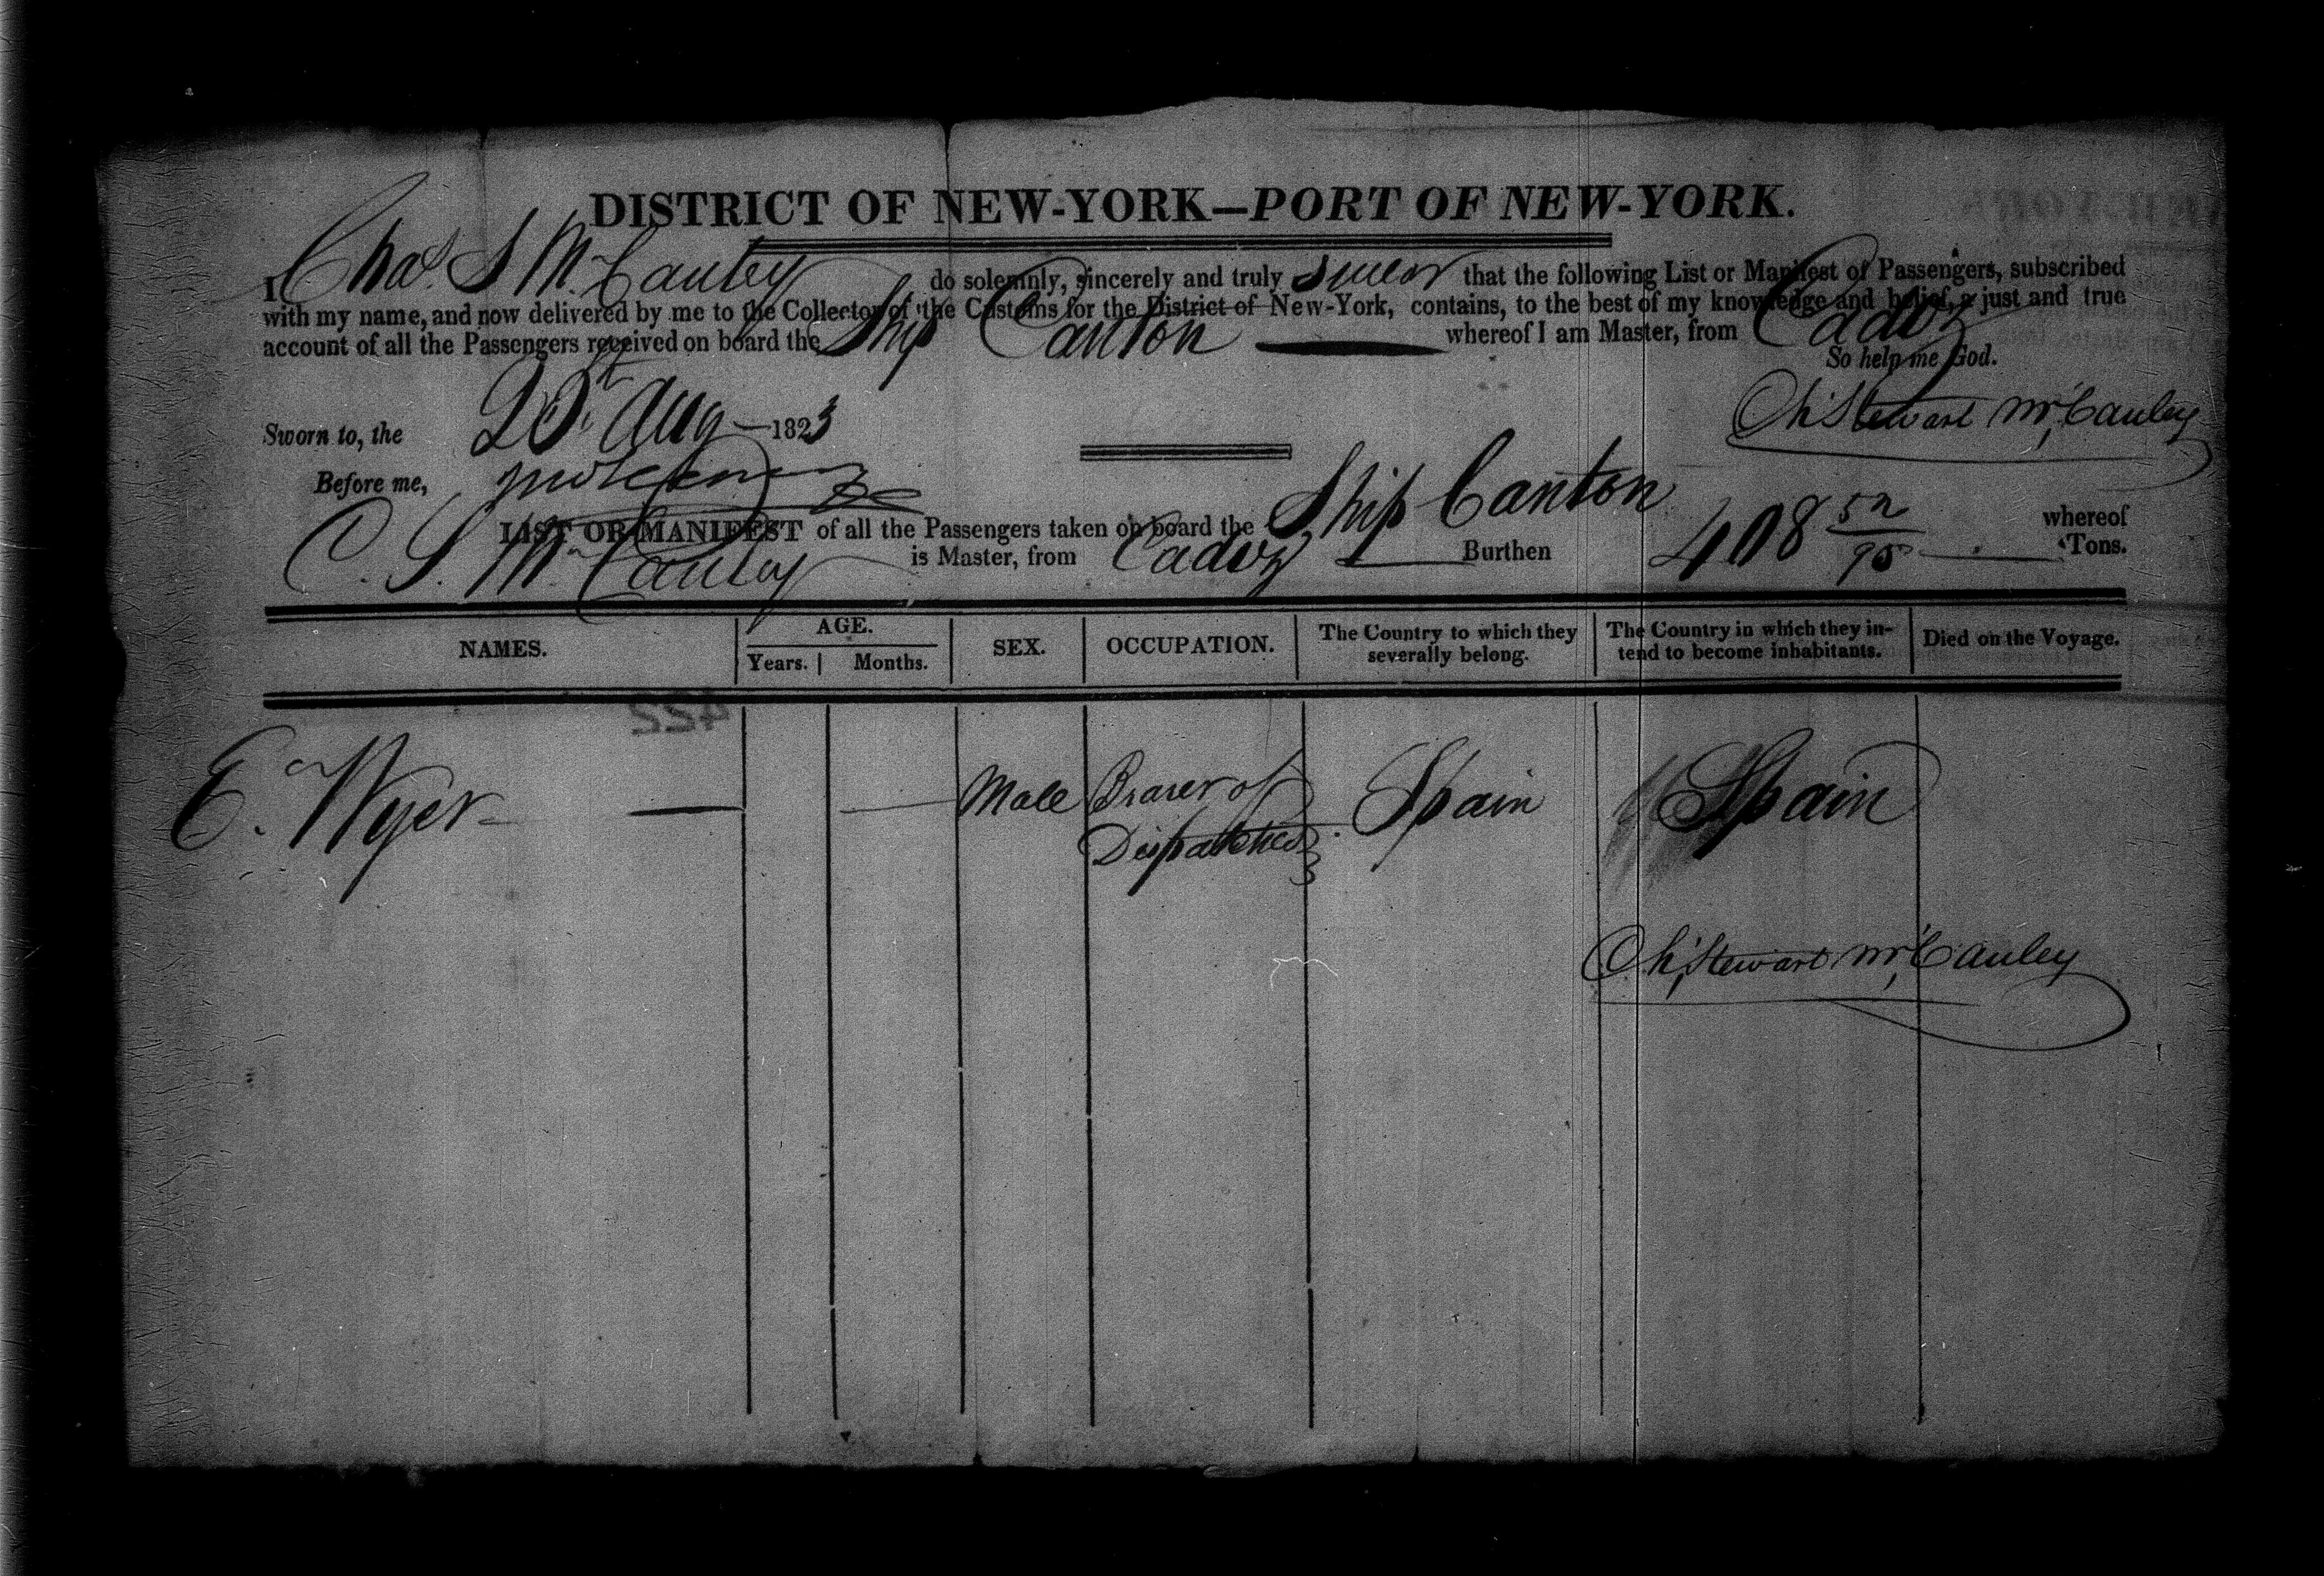 DISTRICT OF NEW-YORK—PORT OF NEW-YORK.
I Chas. S McCauley do solemnly, sincerely and truly swear that the following List or Manifest of Passengers, subscribed
with my name, and now delivered by me to the Collector of the Customs for the District of New-York, contains, to the best of my knowledge and belief, a just and true
account of all the Passengers received on board the Ship Canton whereof I am Master, from Cadiz
So help me God.
Ch Stewart McCauley
Sworn to, the Aug 1823
Before me,
LIST OR MANIFEST of all the Passengers taken on board the Ship Canton whereof
C. S. McCauley is Master, from Cadiz Burthen 408 52/95 Tons.
NAMES. AGE. Years. Months. SEX. OCCUPATION. The Country to which they severally belong. The Country in which they intend to become inhabitants. Died on the Voyage.
422
E. Wyer — Male Brarer of Dispatches Spain Spain
Ch Stewart McCauley